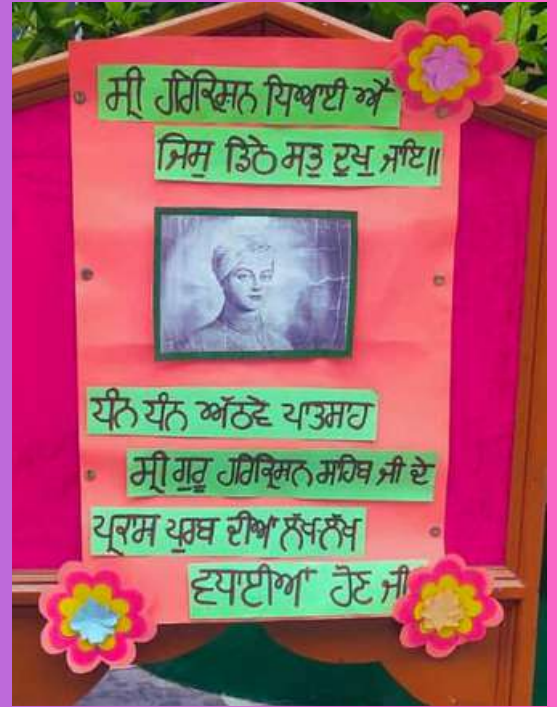 ਸ੍ਰੀ ਹਰਿਕ੍ਰਿਸ਼ਨ ਧਿਆਈ ਐ
ਜਿਸ ਡਿਠੇ ਸਤੁ ਦੁਖੁ ਜਾਇ॥
ਧੰਨ ਧੰਨ ਅੱਠਵੇ ਪਾਤਸਾਹ
ਸ੍ਰੀ ਗੁਰੂ ਹਰਿਕ੍ਰਿਸ਼ਨ ਸਾਹਿਬ ਜੀ ਦੇ
ਪ੍ਰਕਾਸ ਪੁਰਬ ਦੀਆਂ ਲੱਖ ਲੱਖ
ਵਧਾਈਆਂ ਹੋਣ ਜੀ